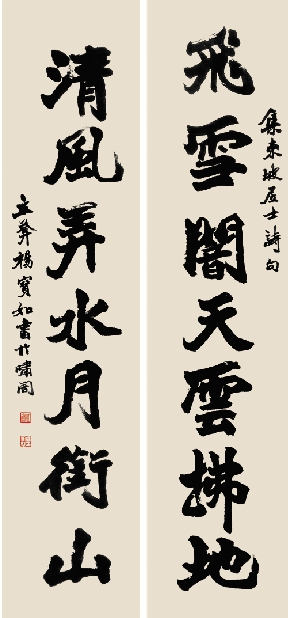 飛雪闇天雲拂地
集東坡居士詩句
清風弄水月銜山
楊寶如書於嘯閣